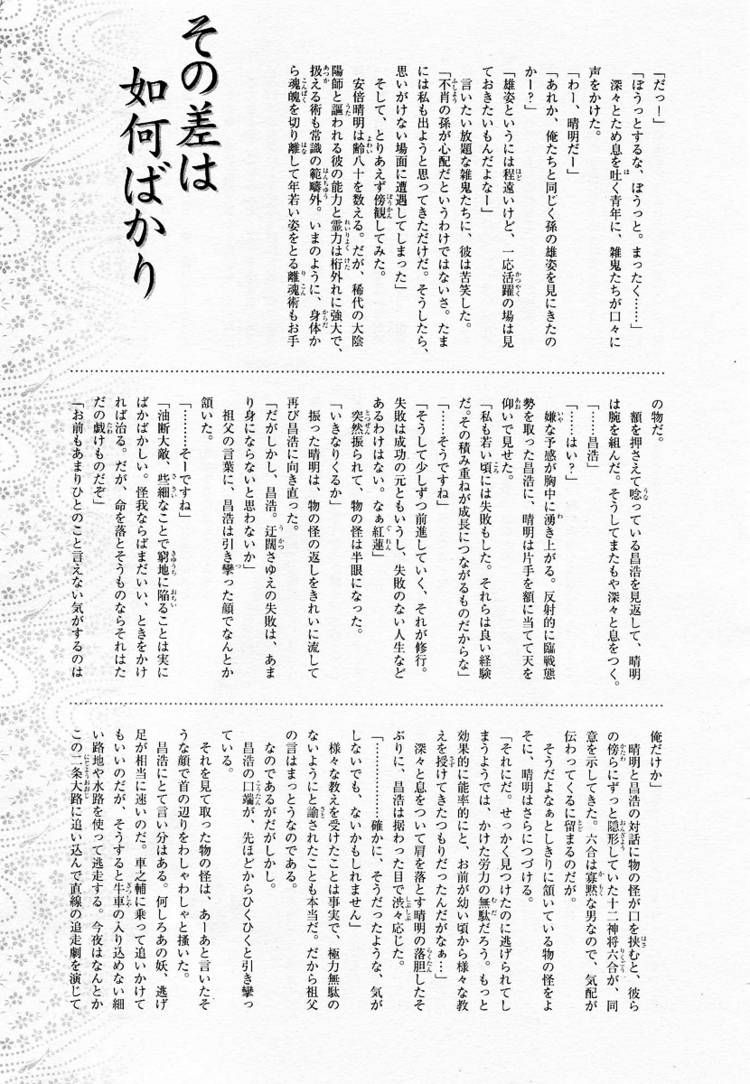 その差は
如何ばかり
「だっー」
「ぼうっとするな、ぼうっと。まったく……」
深々とため息を吐く青年に、雑鬼たちが口々に
声をかけた。
「わー、晴明だー」
「あれか、俺たちと同じく孫の雄姿を見にきたの
かー？」
「雄姿というには程遠いけど、一応活躍の場は見
ておきたいもんだよなー」
言いたい放題な雑鬼たちに、彼は苦笑した。
「不肖の孫が心配だというわけではないさ。たま
には私も出ようと思ってきただけだ。そうしたら、
思いがけない場面に遭遇してしまった」
そして、とりあえず傍観してみた。
安倍晴明は齢八十を数える。だが、稀代の大陰
陽師と謳われる彼の能力と霊力は桁外れに強大で、
扱える術も常識の範疇外。いまのように、身体か
ら魂魄を切り離して年若い姿をとる離魂術もお手
の物だ。
額を押さえて唸っている昌浩を見返して、晴明
は腕を組んだ。そうしてまたもや深々と息をつく。
「……昌浩」
「……はい？」
嫌な予感が胸中に湧き上がる。反射的に臨戦態
勢を取った昌浩に、晴明は片手を額に当てて天を
仰いで見せた。
「私も若い頃には失敗もした。それらは良い経験
だ。その積み重ねが成長につながるものだからな」
「……そうですね」
「そうして少しずつ前進していく、それが修行。
失敗は成功の元ともいうし、失敗のない人生など
あるわけはない。なぁ紅蓮」
突然振られて、物の怪は半眼になった。
「いきなりくるか」
振った晴明は、物の怪の返しをきれいに流して
再び昌浩に向き直った。
「だがしかし、昌浩。迂闊さゆえの失敗は、あま
り身にならないと思わないか」
祖父の言葉に、昌浩は引き攣った顔でなんとか
頷いた。
「………そーですね」
「油断大敵、些細なことで窮地に陥ることは実に
ばかばかしい。怪我ならばまだいい、ときをかけ
れば治る。だが、命を落とそうものならそれはた
だの戯けものだぞ」
「お前もあまりひとのこと言えない気がするのは
俺だけか」
晴明と昌浩の対話に物の怪が口を挟むと、彼ら
の傍らにずっと隠形していた十二神将六合が、同
意を示してきた。六合は寡黙な男なので、気配が
伝わってくるに留まるのだが。
そうだよなぁとしきりに頷いている物の怪をよ
そに、晴明はさらにつづける。
「それにだ。せっかく見つけたのに逃げられてし
まうようでは、かけた労力の無駄だろう。もっと
効果的に能率的にと、お前が幼い頃から様々な教
えを授けてきたつもりだったんだがなぁ…」
深々と息をついて肩を落とす晴明の落胆したそ
ぶりに、昌浩は据わった目で渋々応じた。
「………………確かに、そうだったような、気が
しないでも、ないかもしれません」
様々な教えを受けたことは事実で、極力無駄の
ないようにと諭されたことも本当だ。だから祖父
の言はまっとうなのである。
なのであるがだがしかし。
昌浩の口端が、先ほどからひくひくと引き攣っ
ている。
それを見て取った物の怪は、あーあと言いたそ
うな顔で首の辺りをわしゃわしゃと掻いた。
昌浩にとて言い分はある。何しろあの妖、逃げ
足が相当に速いのだ。車之輔に乗って追いかけて
もいいのだが、そうすると牛車の入り込めない細
い路地や水路を使って逃走する。今夜はなんとか
この二条大路に追い込んで直線の追走劇を演じて